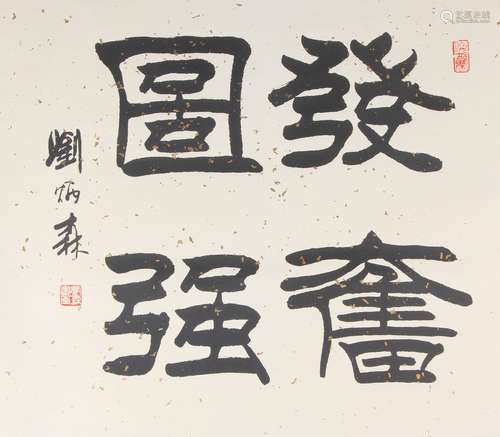 發奮
圖强
劉炳森